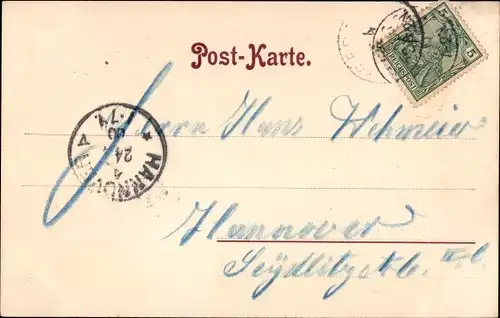 Post-Karte.
5 5
REICHSPOST
Herrn Hans Wehmeier
HANNOVER
4
24
00
7-8
Hannover
Seydlitzstr.